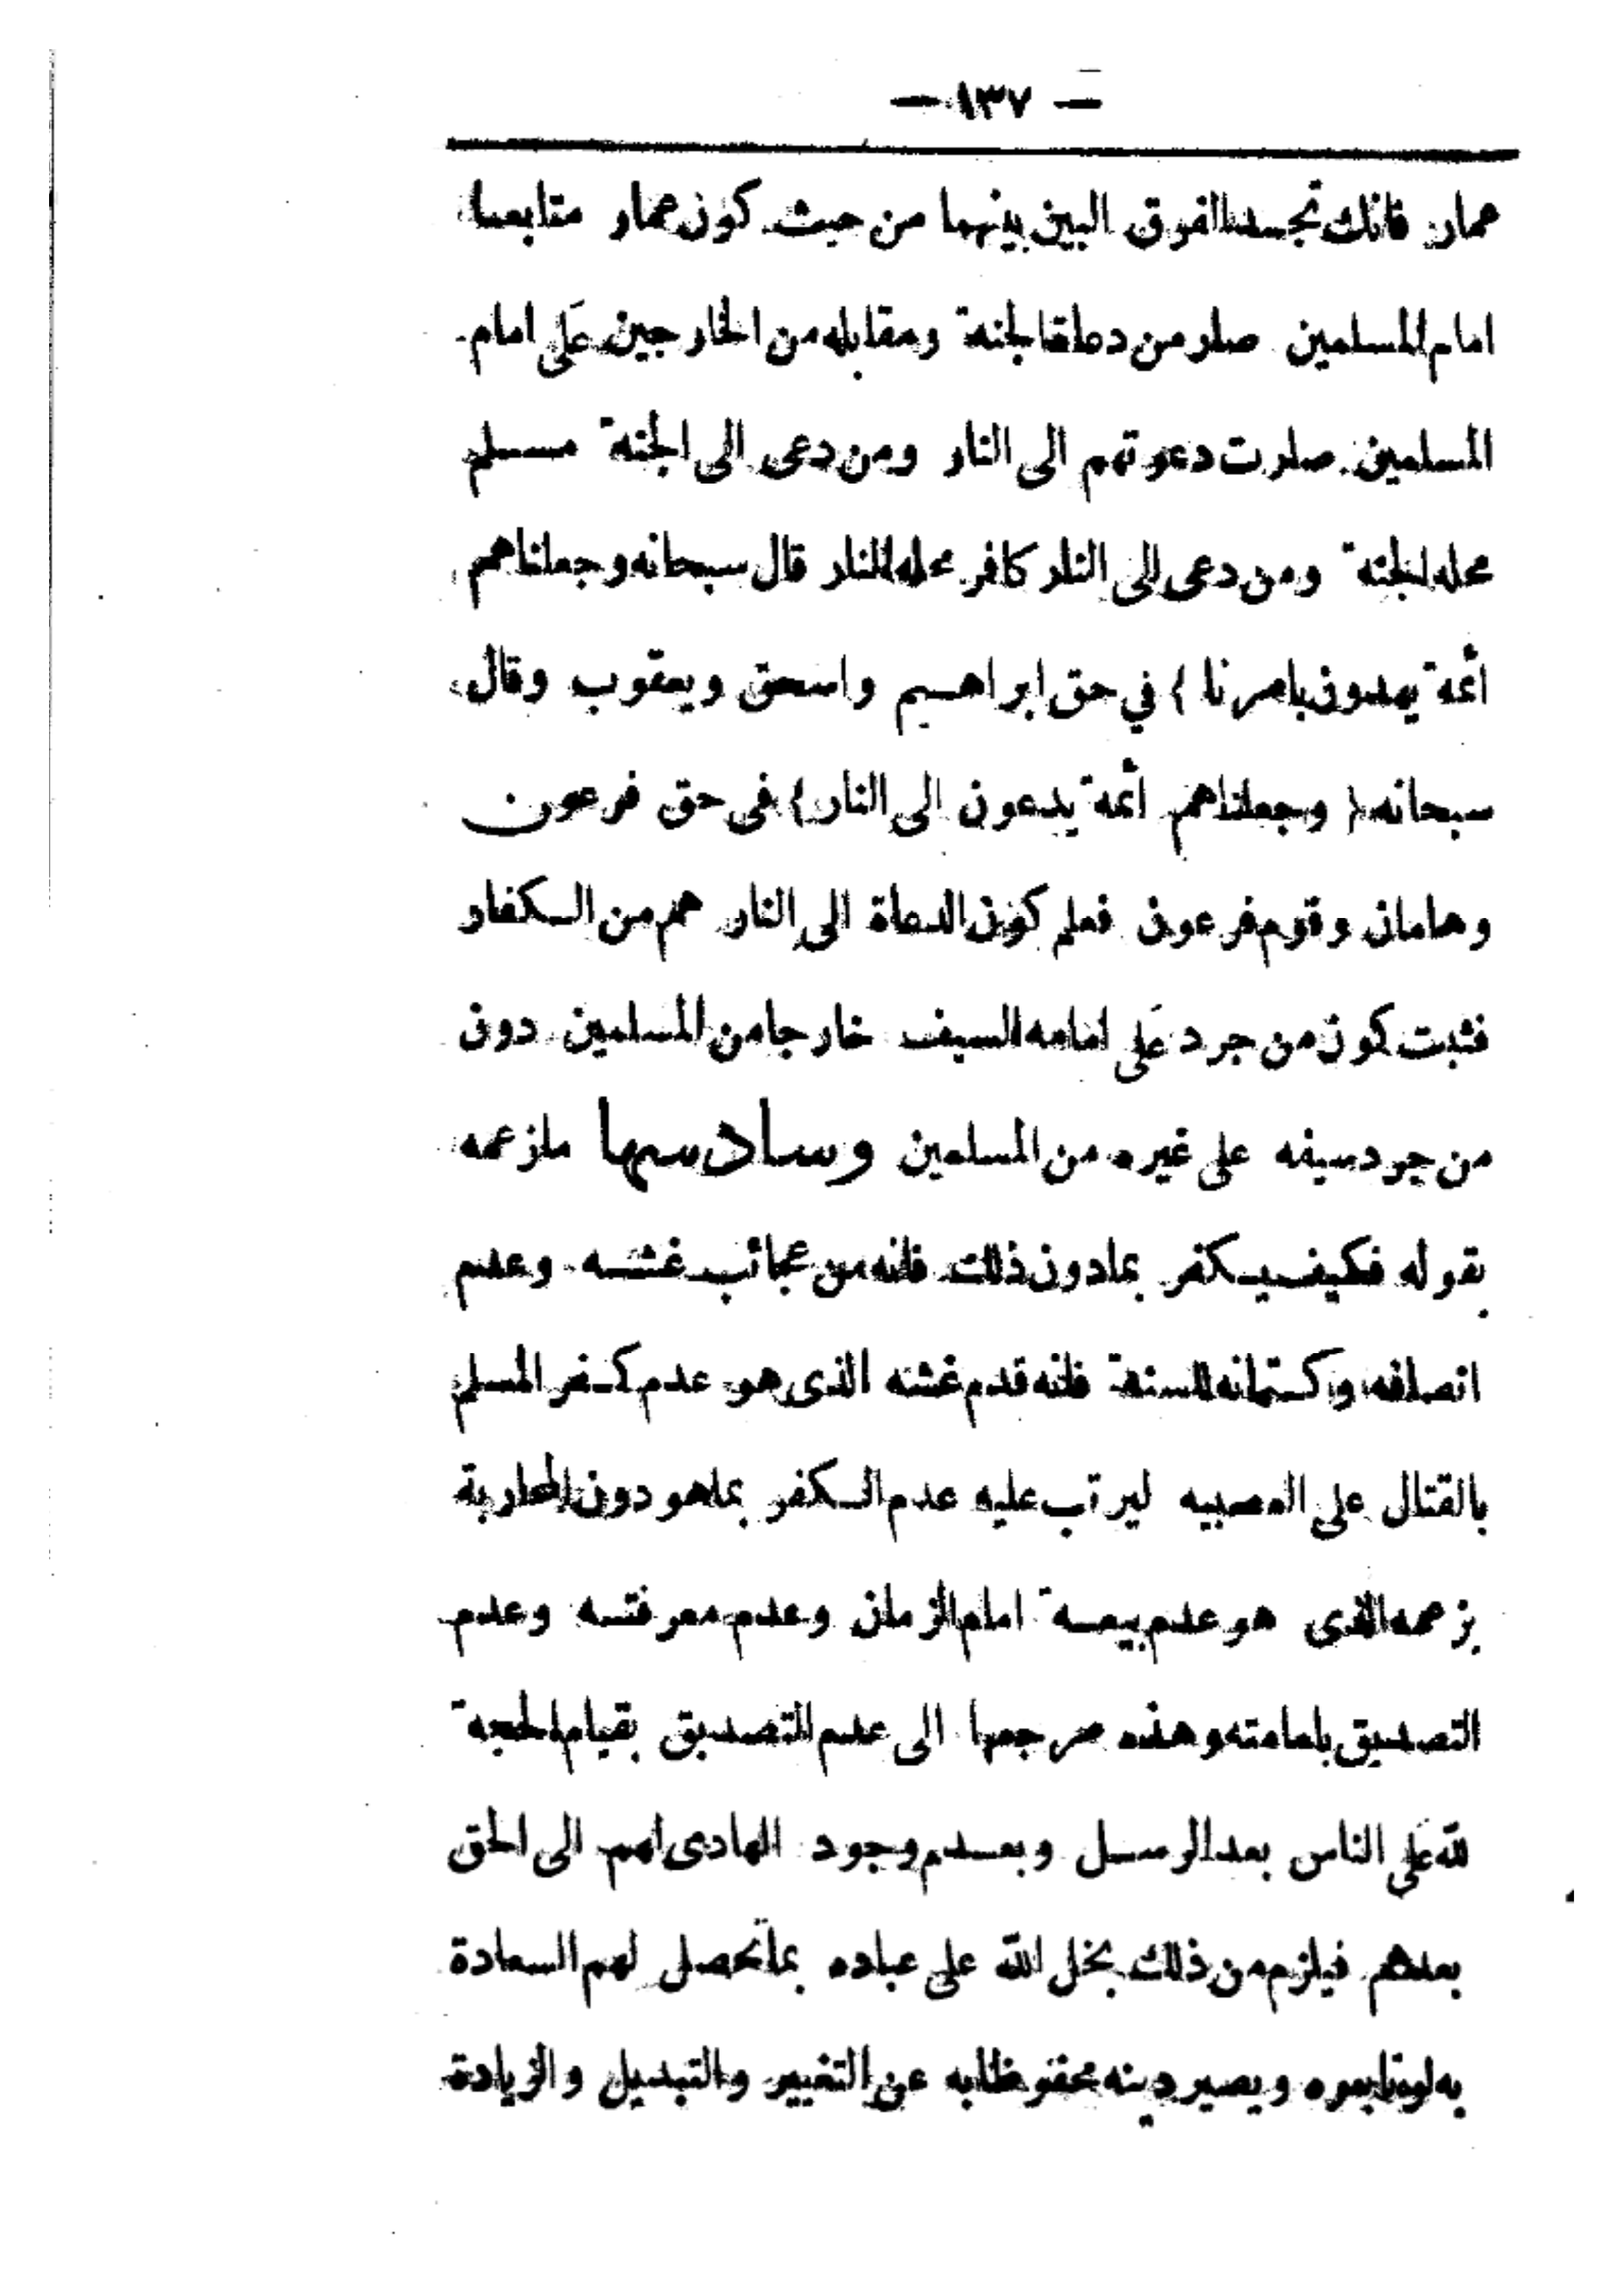 — ١٣٧ —
عمار فانك تجد الفرق البين بينهما من حيث كون عمار متابعا
امام المسلمين صار من دعاة الجنة ومقابله من الخارجين على امام
المسلمين صارت دعوتهم الى النار ومن دعى الى الجنة مسلم
محله الجنة ومن دعى الى النار كافر محله النار قال سبحانه وجعلناهم
أئمة يهدون بامرنا ) في حق ابراهيم واسحق ويعقوب وقال
سبحانه ( وجعلناهم أئمة يدعون الى النار ) فى حق فرعون
وهامان وقوم فرعون فعلم كون الدعاة الى النار هم من الكفار
فثبت كون من جرد على امامه السيف خارجا من المسلمين دون
من جرد سيفه على غيره من المسلمين وسادسها مازعمه
بقوله فكيف يكفر بمادون ذلك فانه من عجائب غشه وعدم
انصافه وكتمانه للسنة فانه قدم غشه الذى هو عدم كفر المسلم
بالقتال على العصبيه ليرتب عليه عدم الكفر بماهو دون المحاربة
بزعمه الذى هو عدم بيعة امام الزمان وعدم معرفته وعدم
التصديق بامامته وهذه مرجعها الى عدم التصديق بقيام الحجة
لله على الناس بعد الرسل وبعدم وجود الهادى لهم الى الحق
بعدهم فيلزم من ذلك بخل الله على عباده بما تحصل لهم السعادة
به لو تابعوه ويصير دينه محفوظا به عن التغيير والتبديل والزيادة